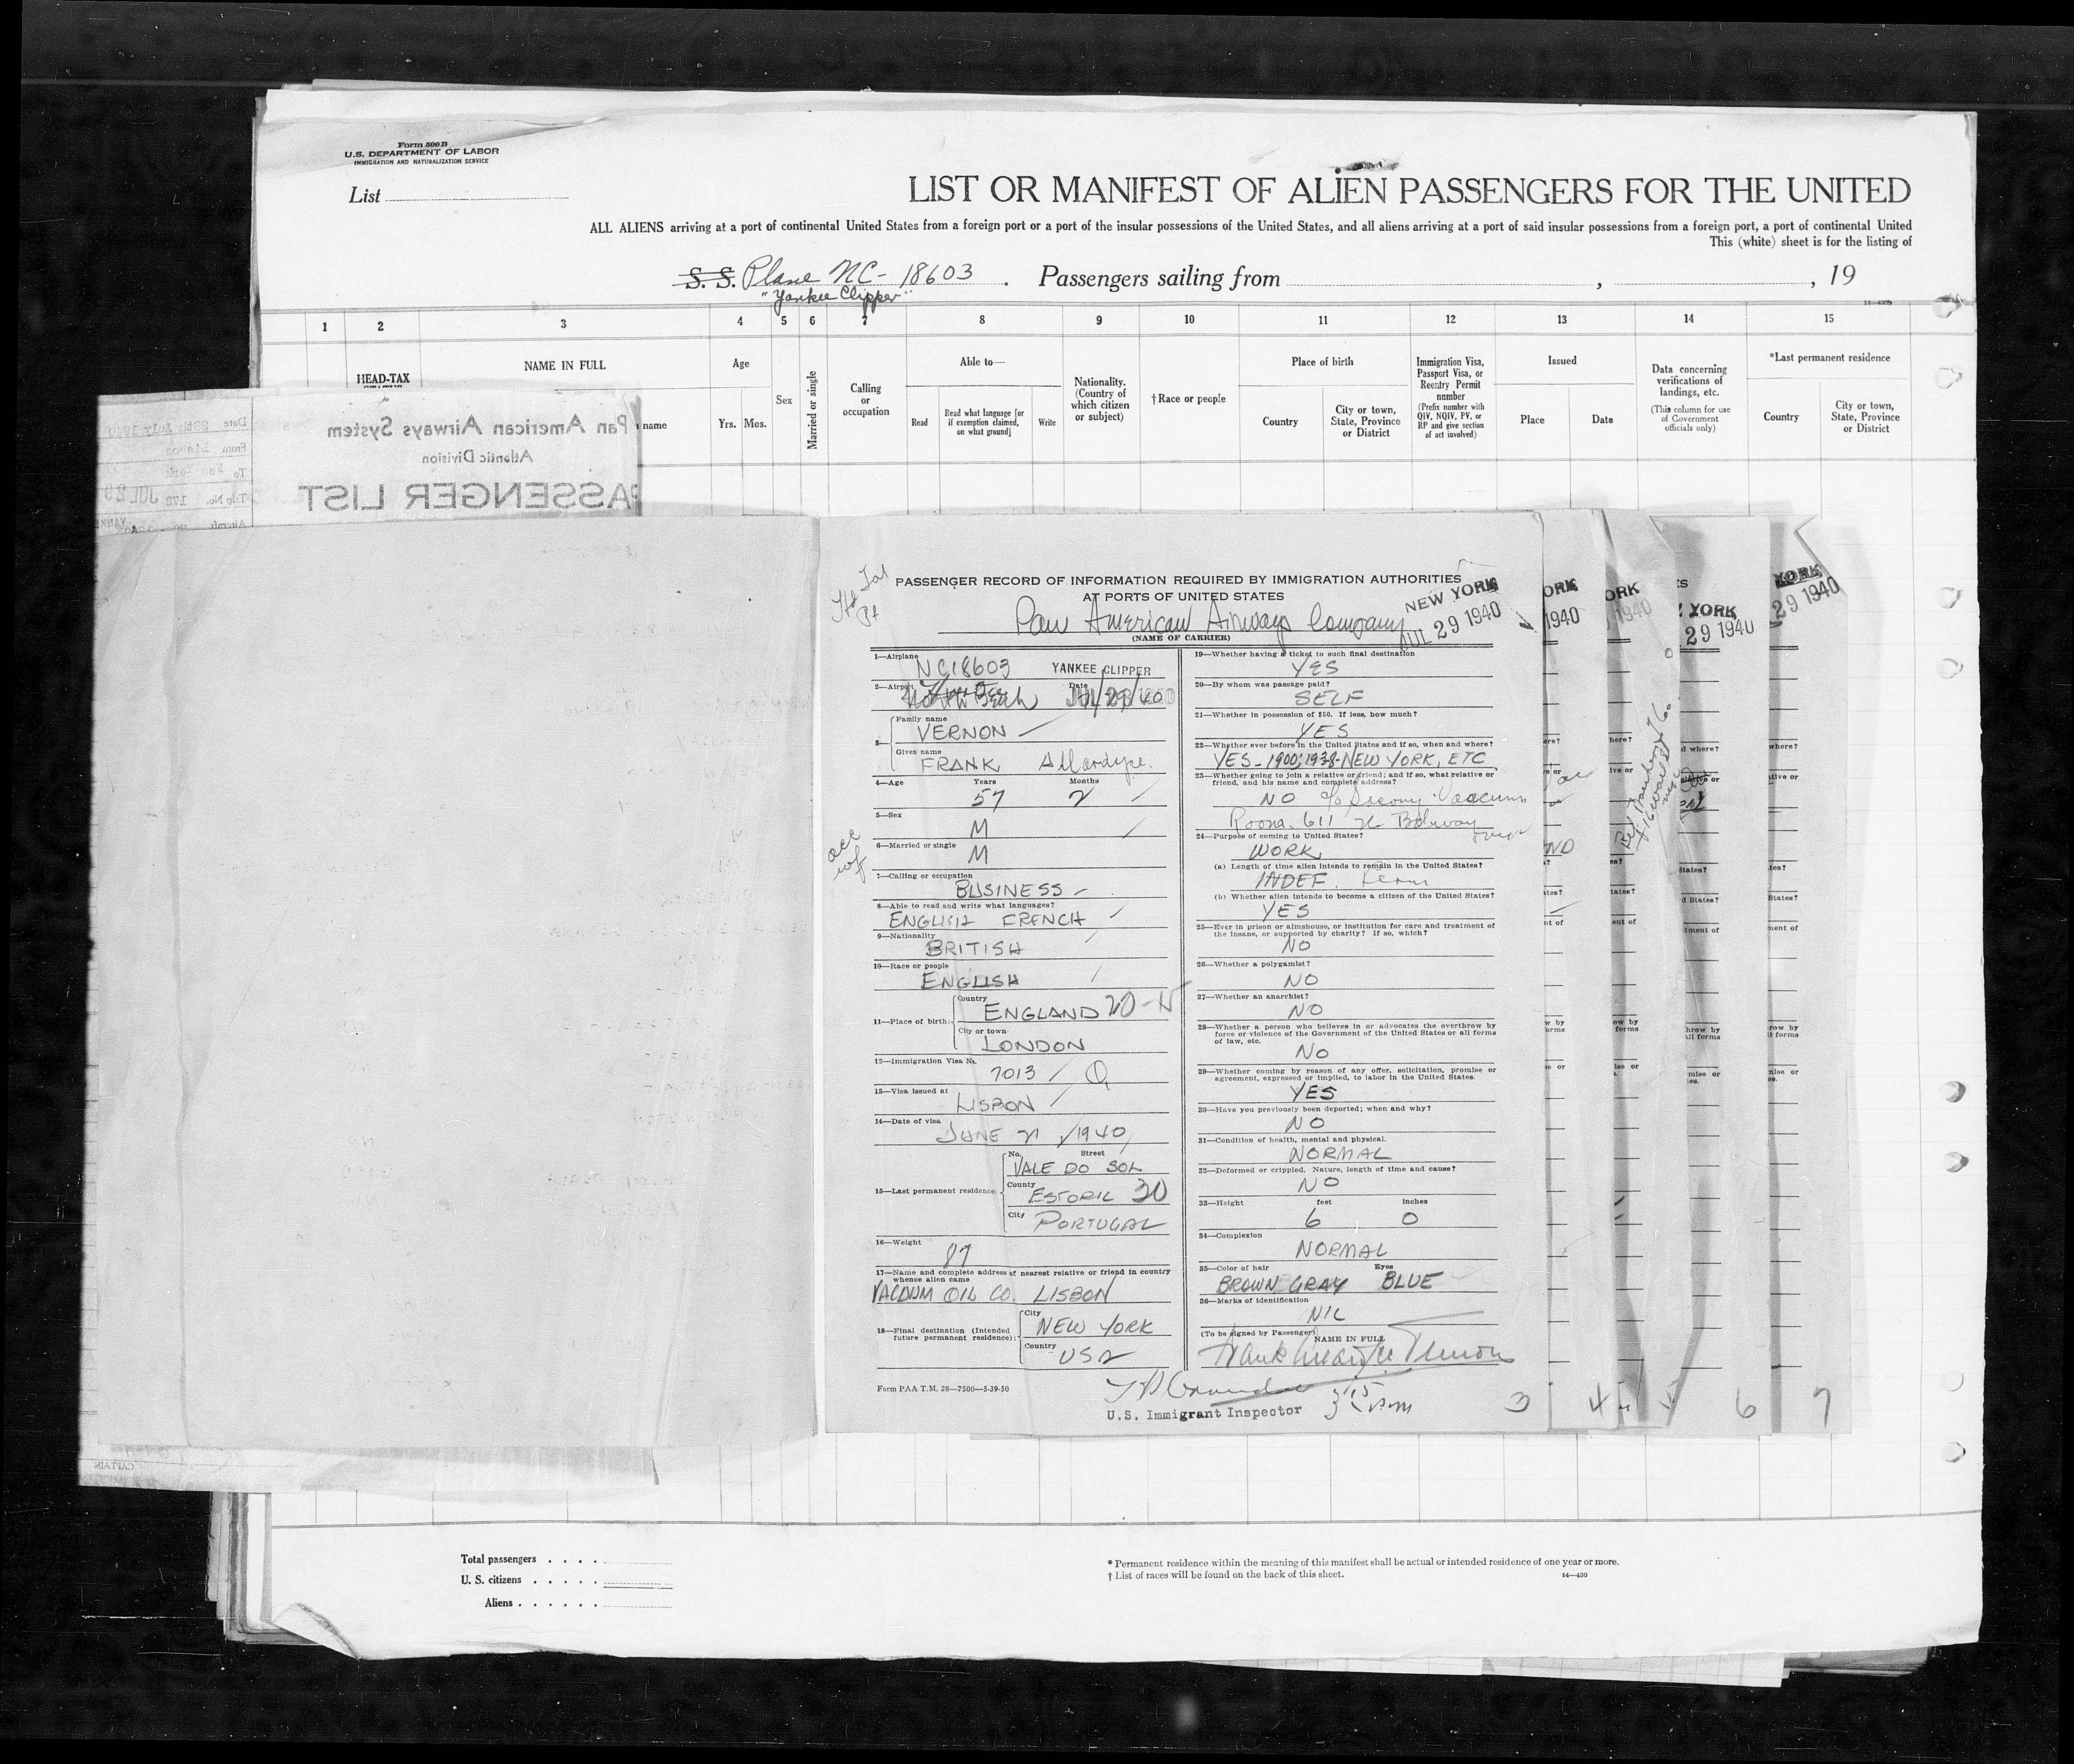 Form 500 B
U.S. DEPARTMENT OF LABOR
IMMIGRATION AND NATURALIZATION SERVICE
List
LIST OR MANIFEST OF ALIEN PASSENGERS FOR THE UNITED
ALL ALIENS arriving at a port of continental United States from a foreign port or a port of the insular possessions of the United States, and all aliens arriving at a port of said insular possessions from a foreign port, a port of continental United
This (white) sheet is for the listing of
S. S. Plane NC-18603. Passengers sailing from , , 19
"Yankee Clipper"
1 2 3 4 5 6 7 8 9 10 11 12 13 14 15
HEAD-TAX
NAME IN FULL
name
Age
Yrs. Mos.
Sex
Married or single
Calling
or
occupation
Able to—
Read
Read what language [or
if exemption claimed,
on what ground]
Write
Nationality.
(Country of
which citizen
or subject)
†Race or people
Place of birth
Country
City or town,
State, Province
or District
Immigration Visa,
Passport Visa, or
Reentry Permit
number
(Prefix number with
QIV, NQIV, PV, or
RP and give section
of act involved)
Issued
Place
Date
Data concerning
verifications of
landings, etc.
(This column for use
of Government
officials only)
*Last permanent residence
Country
City or town,
State, Province
or District
Pan American Airways System
Atlantic Division
PASSENGER LIST
Date 28th July 1940
From Lisbon
To New York
Trip No. 173 JUL 29
Aircraft
PASSENGER RECORD OF INFORMATION REQUIRED BY IMMIGRATION AUTHORITIES
AT PORTS OF UNITED STATES
Pan American Airways Company
(NAME OF CARRIER)
NEW YORK
JUL 29 1940
1—Airplane NC18603 YANKEE CLIPPER
2—Airport North Beach Date 7/29/40
3— Family name
VERNON
Given name
FRANK Allardyce.
4—Age Years Months
57 2
5—Sex
M
6—Married or single
M
7—Calling or occupation
BUSINESS
8—Able to read and write what languages?
ENGLISH FRENCH
9—Nationality
BRITISH
10—Race or people
ENGLISH
11—Place of birth: Country
ENGLAND
City or town
LONDON
12—Immigration Visa No.
7013 Q
13—Visa issued at
LISBON
14—Date of visa
JUNE 21 1940
15—Last permanent residence: No. Street
VALE DO SOL
County
ESTORIL 30
City PORTUGAL
16—Weight
87
17—Name and complete address of nearest relative or friend in country
whence alien came
VACUUM OIL CO. LISBON
18—Final destination (Intended
future permanent residence): City
NEW YORK
Country
USA
Form PAA T.M. 28—7500—5-39-50
19—Whether having a ticket to such final destination
YES
20—By whom was passage paid?
SELF
21—Whether in possession of $50. If less, how much?
YES
22—Whether ever before in the United States and if so, when and where?
YES - 1900; 1938 - NEW YORK, ETC
23—Whether going to join a relative or friend; and if so, what relative or
friend, and his name and complete address?
NO c/o Socony-Vacuum
Room 611 26 Bdway
24—Purpose of coming to United States?
WORK
(a) Length of time alien intends to remain in the United States?
INDEF.
(b) Whether alien intends to become a citizen of the United States?
YES
25—Ever in prison or almshouse, or institution for care and treatment of
the insane, or supported by charity? If so, which?
NO
26—Whether a polygamist?
NO
27—Whether an anarchist?
NO
28—Whether a person who believes in or advocates the overthrow by
force or violence of the Government of the United States or all forms
of law, etc.
NO
29—Whether coming by reason of any offer, solicitation, promise or
agreement, expressed or implied, to labor in the United States.
YES
30—Have you previously been deported; when and why?
NO
31—Condition of health, mental and physical.
NORMAL
32—Deformed or crippled. Nature, length of time and cause?
NO
33—Height feet inches
6 0
34—Complexion
NORMAL
35—Color of hair Eyes
BROWN GRAY BLUE
36—Marks of identification
NIL
(To be signed by Passenger)
NAME IN FULL
Frank Allardyce Vernon
U.S. Immigrant Inspector
3 4 5 6 7
Total passengers
U. S. citizens
Aliens
* Permanent residence within the meaning of this manifest shall be actual or intended residence of one year or more.
† List of races will be found on the back of this sheet.
14—430